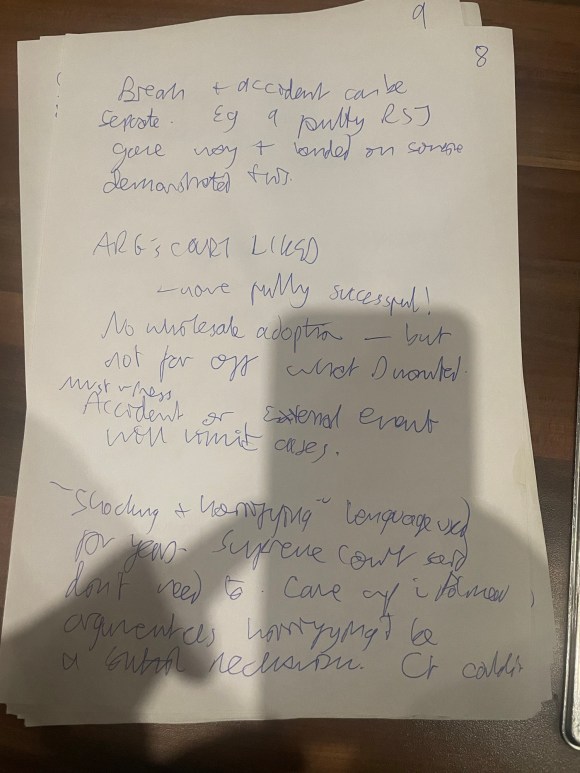 9
8
Breach + accident can be
seperate. Eg a RSJ
gave way + landed on
demonstrated this.
ARG's COURT LIKED
– none fully sucessful!
No wholesale adoption – but
not far off what D wanted.
must witness
Accident or External event
will limit cases.
"Shocking + horrifying" language used
for years. Supreme Court said
don't need to. Care w/
arguments horrifying to be
a decision. Ct couldn't